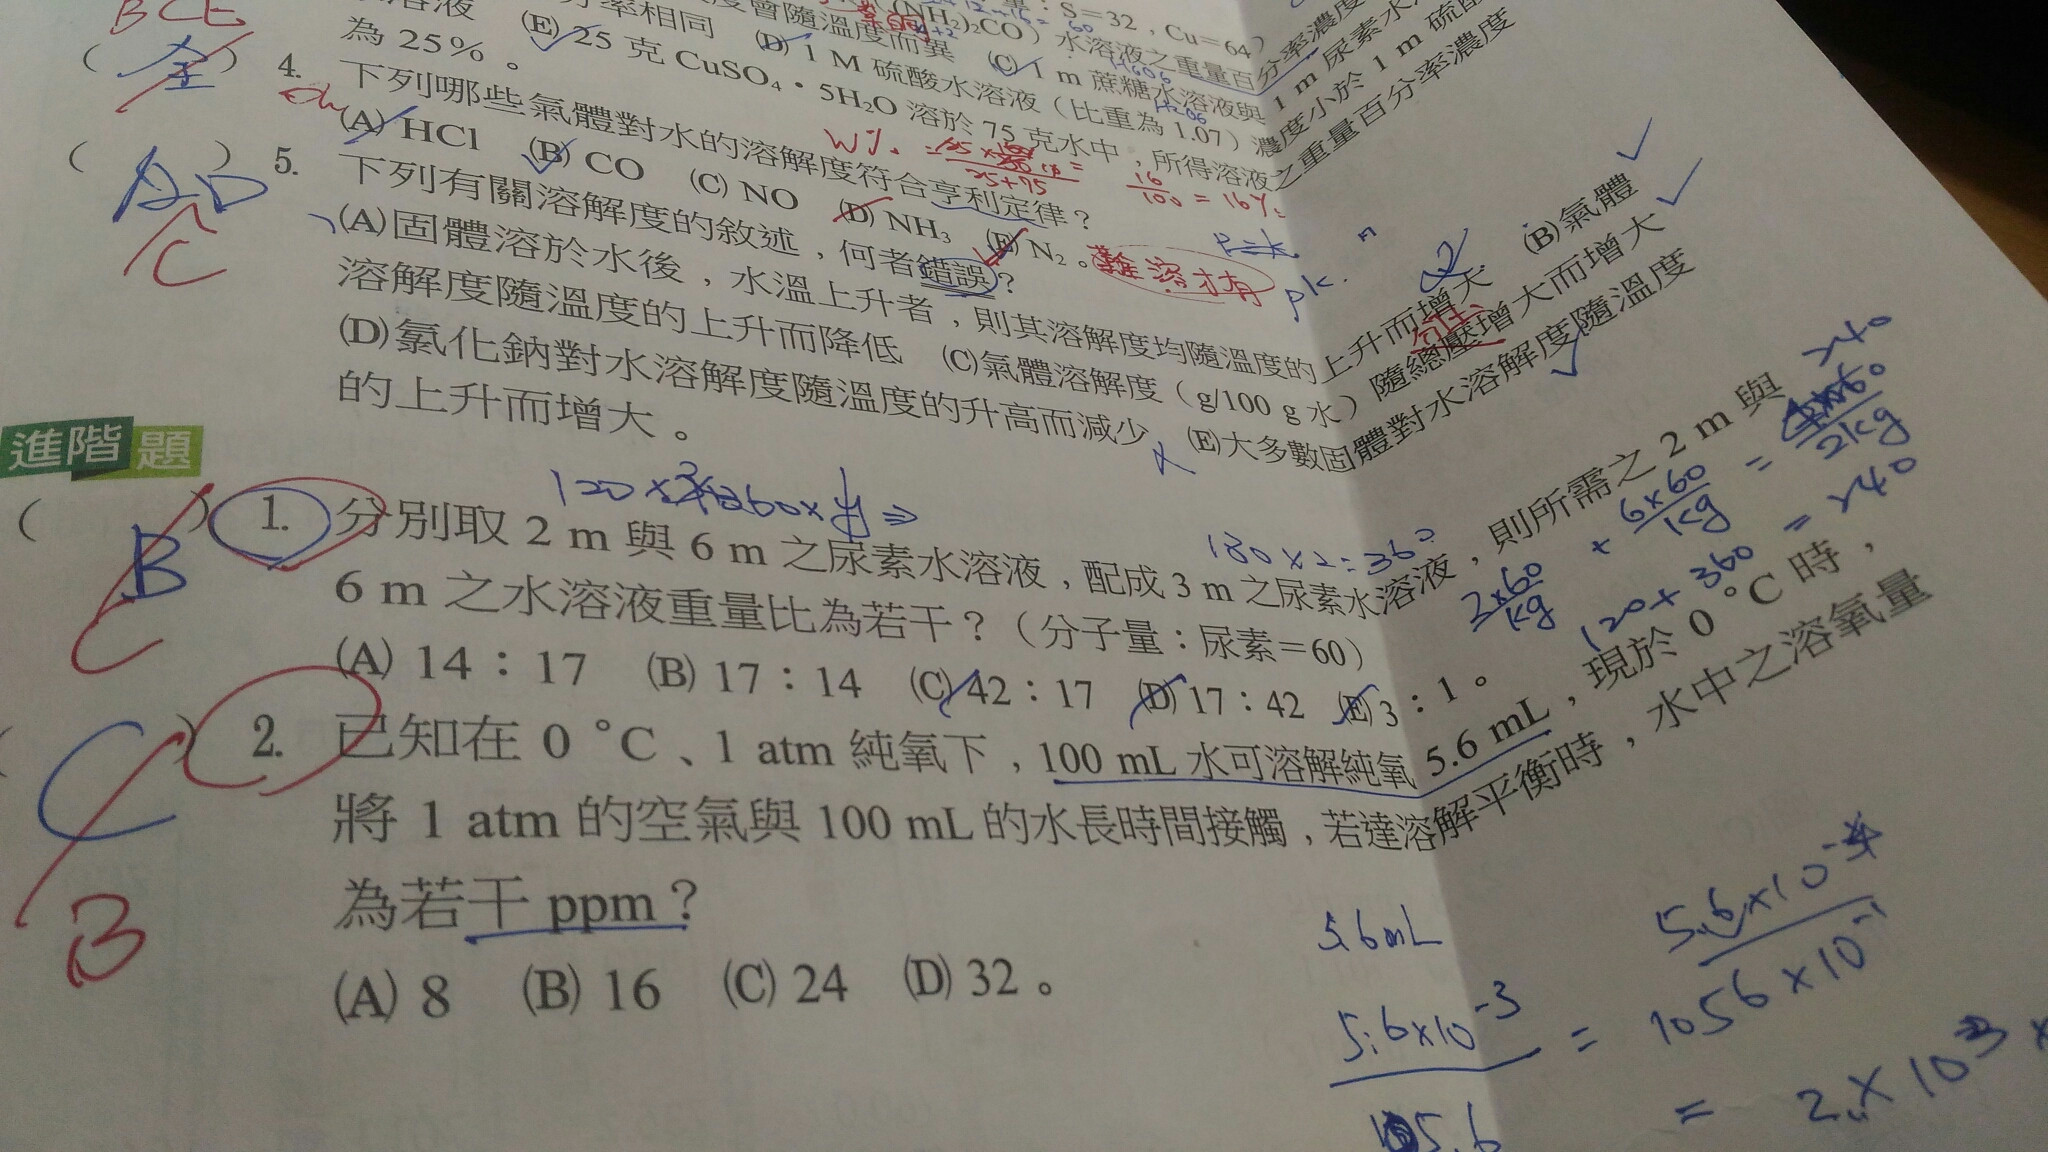 BCE
全
S=32，Cu=64）
(NH₂)₂CO）水溶液之重量百分率濃度
分率相同 (D) 1 M 硫酸水溶液（比重為 1.07）濃度小於 1 m 硫酸
(C) 1 m 蔗糖水溶液與 1 m 尿素水
(E) 25 克 CuSO₄・5H₂O 溶於 75 克水中，所得溶液之重量百分率濃度
為 25%。
W% =
25+75
16
100
= 16%
4. 下列哪些氣體對水的溶解度符合亨利定律？
(A) HCl (B) CO (C) NO (D) NH₃ (E) N₂。
難溶才有
AD
C
5. 下列有關溶解度的敘述，何者錯誤？
(A)固體溶於水後，水溫上升者，則其溶解度均隨溫度的上升而增大 (B)氣體
溶解度隨溫度的上升而降低 (C)氣體溶解度（g/100 g 水）隨總壓增大而增大
分壓
(D)氯化鈉對水溶解度隨溫度的升高而減少 (E)大多數固體對水溶解度隨溫度
的上升而增大。
進階題
B
C
1. 分別取 2 m 與 6 m 之尿素水溶液，配成 3 m 之尿素水溶液，則所需之 2 m 與
6 m 之水溶液重量比為若干？（分子量：尿素＝60）
(A) 14：17 (B) 17：14 (C) 42：17 (D) 17：42 (E) 3：1。
180×2=360
2×60
kg
+
6×60
kg
=
2kg
120+360 = >40
C
B
2. 已知在 0 °C、1 atm 純氧下，100 mL 水可溶解純氧 5.6 mL，現於 0 °C 時，
將 1 atm 的空氣與 100 mL 的水長時間接觸，若達溶解平衡時，水中之溶氧量
為若干 ppm？
(A) 8 (B) 16 (C) 24 (D) 32。
5.6mL
5.6×10⁻³
105.6
=
1056×10⁻¹